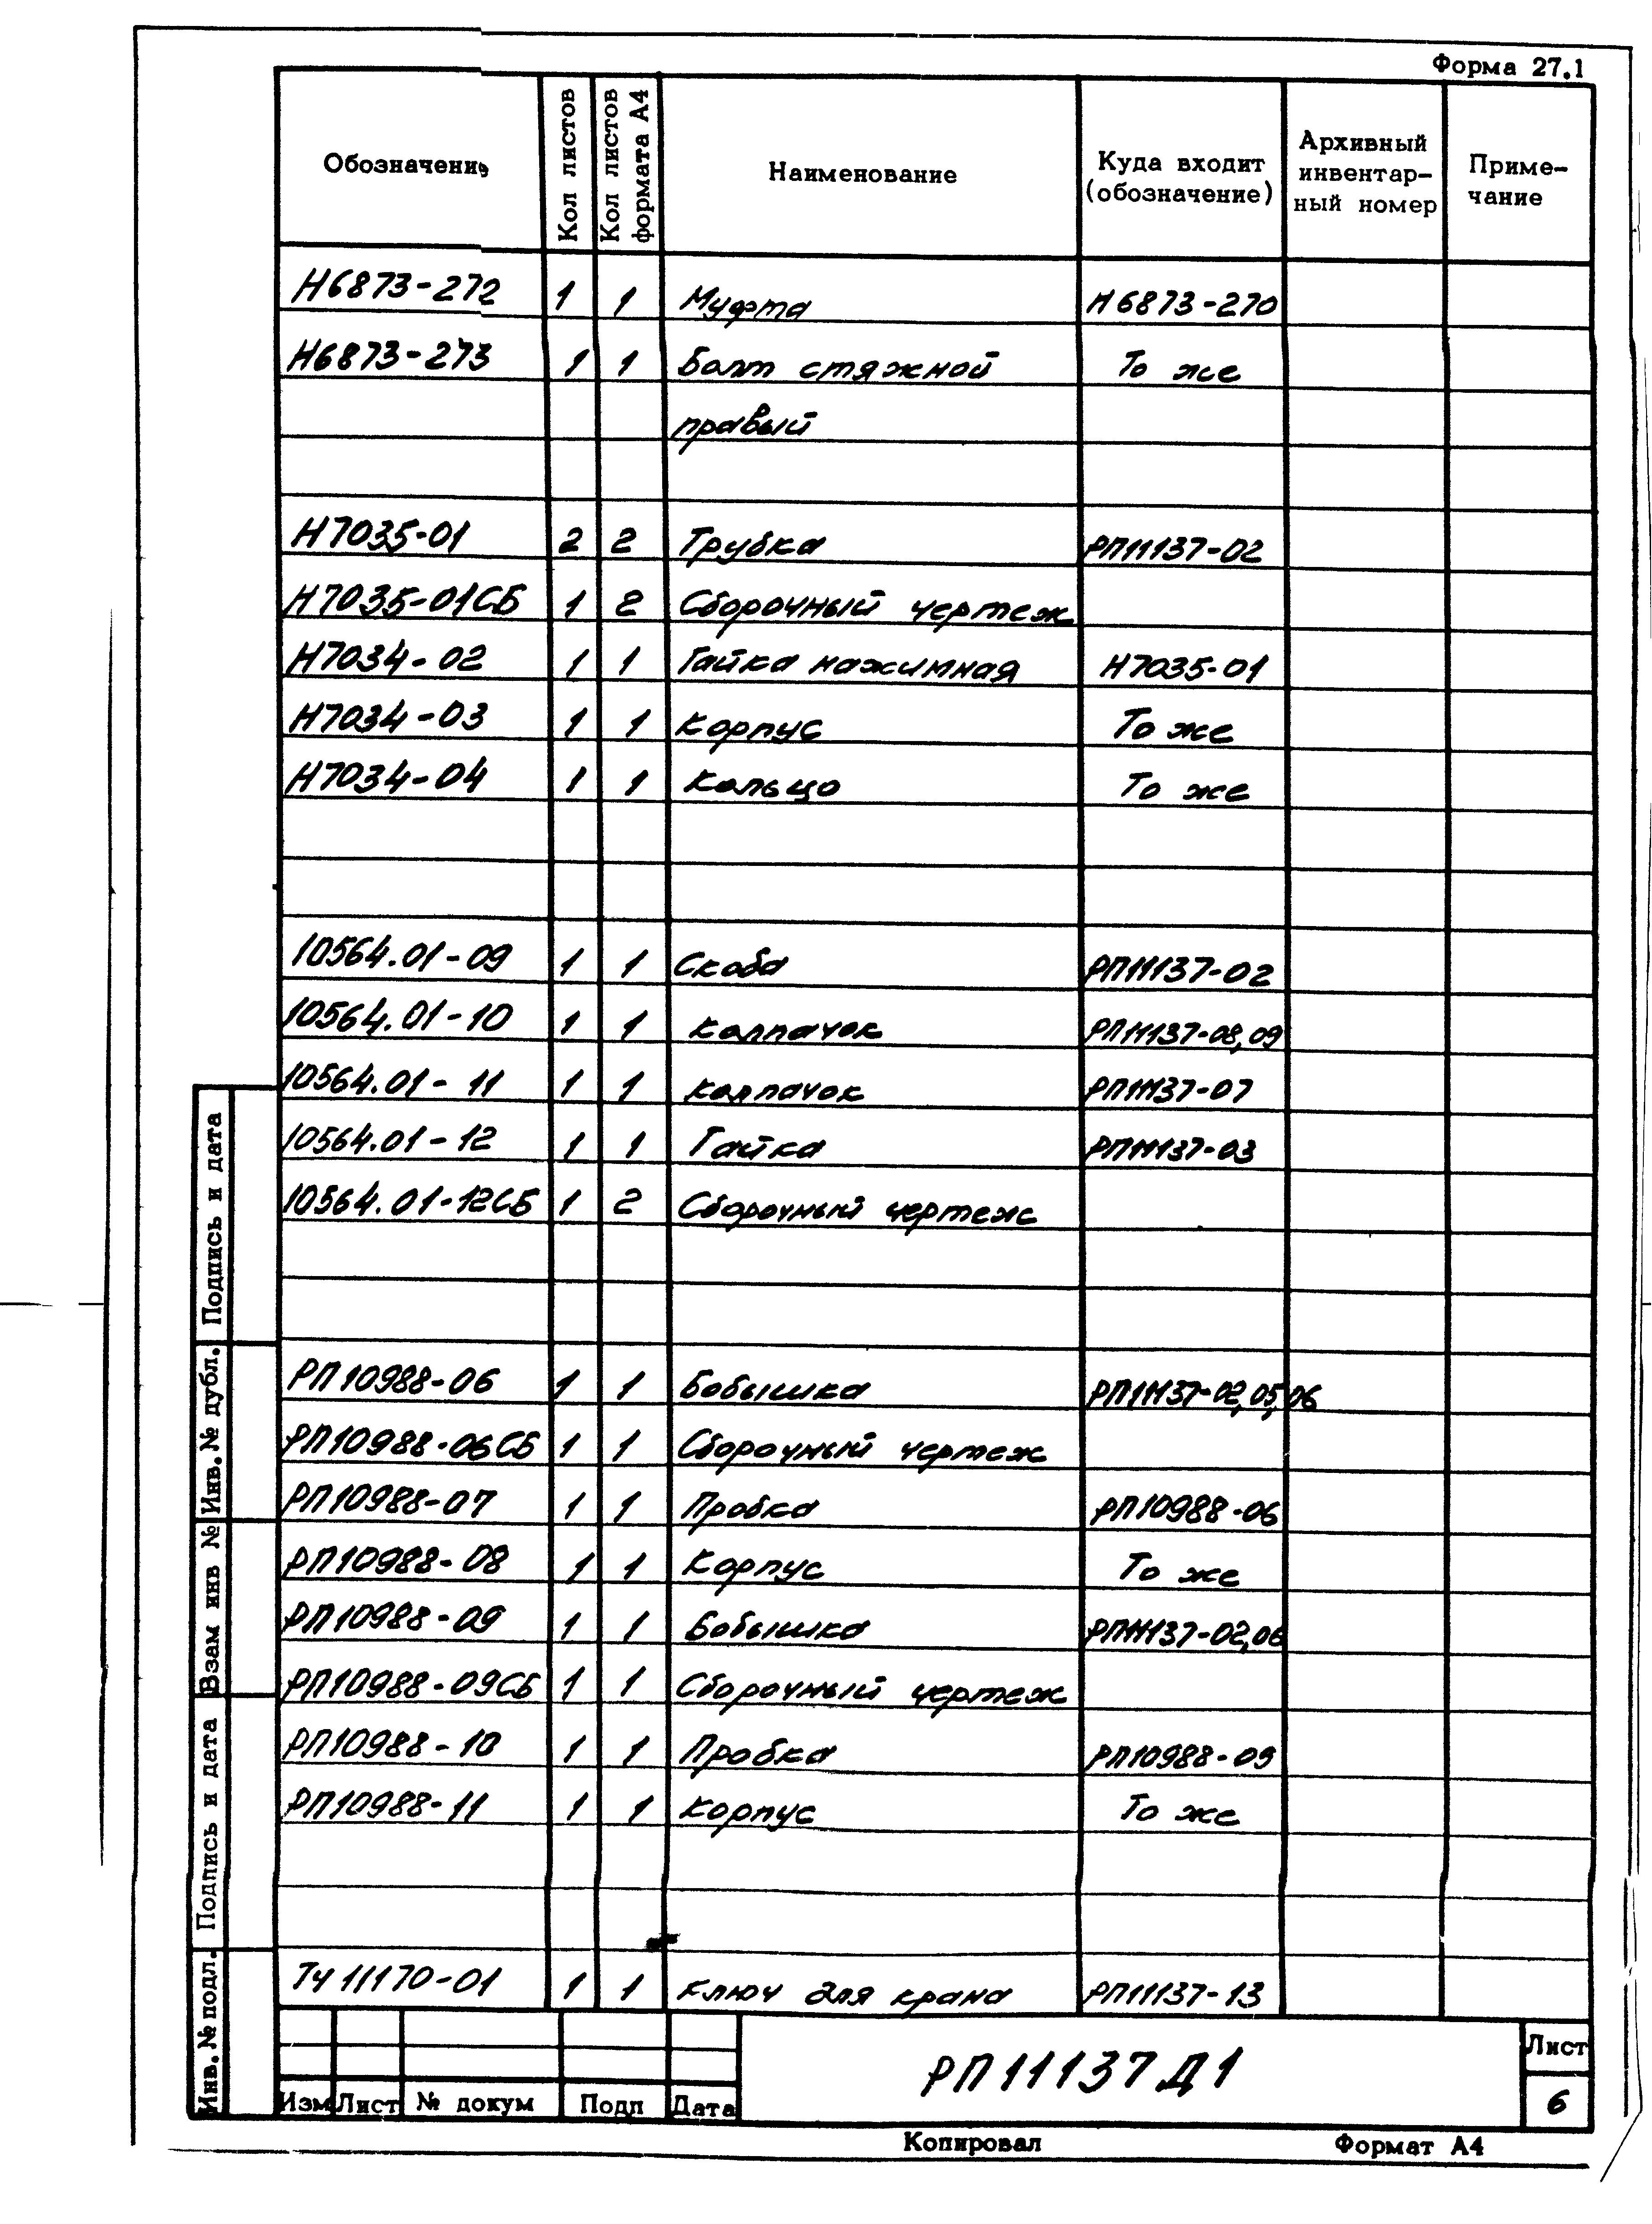 Форма 27.1
Обозначение Кол листов Кол листов формата А4 Наименование Куда входит (обозначение) Архивный инвентар-ный номер Приме-чание
Н6873-272 1 1 Муфта Н6873-270
Н6873-273 1 1 Болт стяжной То же
правый
Н7035-01 2 2 Трубка РП11137-02
Н7035-01СБ 1 2 Сборочный чертеж
Н7034-02 1 1 Гайка нажимная Н7035-01
Н7034-03 1 1 Корпус То же
Н7034-04 1 1 Кольцо То же
10564.01-09 1 1 Скоба РП11137-02
10564.01-10 1 1 Колпачок РП11137-08,09
10564.01-11 1 1 Колпачок РП11137-07
10564.01-12 1 1 Гайка РП11137-03
10564.01-12СБ 1 2 Сборочный чертеж
РП10988-06 1 1 Бобышка РП11137-02,05,06
РП10988-06СБ 1 1 Сборочный чертеж
РП10988-07 1 1 Пробка РП10988-06
РП10988-08 1 1 Корпус То же
РП10988-09 1 1 Бобышка РП11137-02,06
РП10988-09СБ 1 1 Сборочный чертеж
РП10988-10 1 1 Пробка РП10988-09
РП10988-11 1 1 Корпус То же
ТЧ11170-01 1 1 Ключ для крана РП11137-13
Подпись и дата
Инв.№ дубл.
Взам инв №
Подпись и дата
Инв.№ подл.
Изм Лист № докум Подп Дата
РП11137Д1
Лист
6
Копировал Формат А4